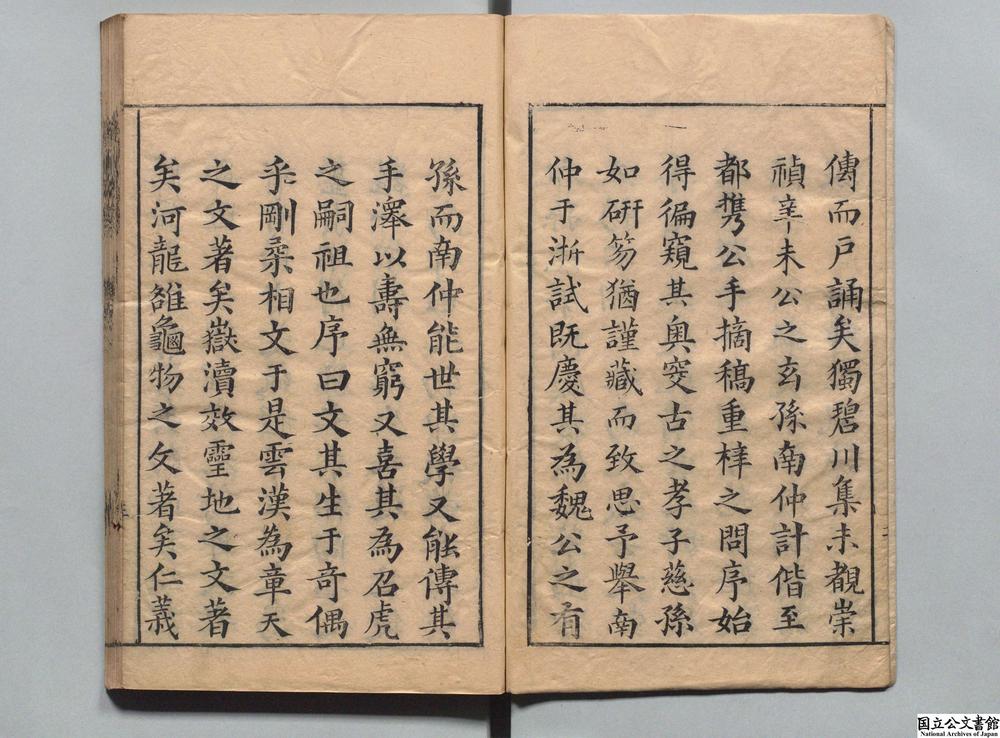 傳而戸誦矣獨碧川集未覩崇
禎辛未公之玄孫南仲計偕至
都携公手摘稿重梓之問序始
得徧窺其奥窔古之孝子慈孫
如研笏猶謹藏而致思予舉南
仲于浙試既慶其為魏公之有
孫而南仲能世其學又能傳其
手澤以壽無窮又喜其為召虎
之嗣祖也序曰文其生于奇偶
乎剛柔相文于是雲漢為章天
之文著矣嶽瀆效靈地之文著
矣河龍雒龜物之文著矣仁義
国立公文書館
National Archives of Japan